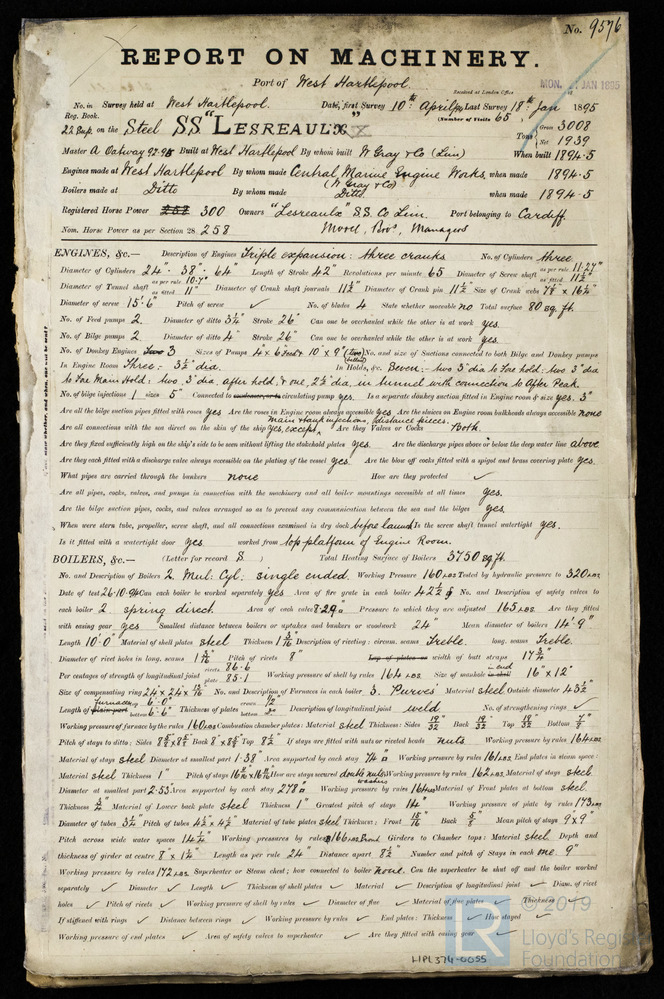 No. 9576
REPORT ON MACHINERY.
Port of West Hartlepool.
Received at London Office
MON. JAN 1895
No. in Survey held at West Hartlepool. Date, first Survey 10th April 94 Last Survey 18th Jan 1895
Reg. Book. (Number of Visits 65)
22 Sup. on the Steel SS "LESREAULX" Tons Gross 3008
Net 1939
Master A Oatway 92-94 Built at West Hartlepool By whom built W Gray & Co (Lim) When built 1894.5
Engines made at West Hartlepool By whom made Central Marine Engine Works when made 1894.5
(W Gray & Co)
Boilers made at Ditto By whom made Ditto. when made 1894.5
Registered Horse Power 252 300 Owners "Lesreaulx" S.S. Co Lim. Port belonging to Cardiff.
Nom. Horse Power as per Section 28 258 Morel, Bros, Managers
ENGINES, &c.— Description of Engines Triple expansion: three cranks No. of Cylinders three
Diameter of Cylinders 24". 38". 64" Length of Stroke 42" Revolutions per minute 65 Diameter of Screw shaft as per rule 11.27" as fitted 11½"
Diameter of Tunnel shaft as per rule 10.7" as fitted 11" Diameter of Crank shaft journals 11½" Diameter of Crank pin 11½" Size of Crank webs 7½ × 16½"
Diameter of screw 15'.6" Pitch of screw ✓ No. of blades 4 State whether moveable no Total surface 80 sq. ft.
No. of Feed pumps 2. Diameter of ditto 3½" Stroke 26" Can one be overhauled while the other is at work yes.
No. of Bilge pumps 2. Diameter of ditto 4" Stroke 26" Can one be overhauled while the other is at work yes.
No. of Donkey Engines Two 3 Sizes of Pumps 4 × 6" feed & 10 × 9" (two) (ballast) No. and size of Suctions connected to both Bilge and Donkey pumps
In Engine Room Three:- 3½" dia. In Holds, &c. Seven:- two 3" dia to Fore hold: two 3" dia
to Far Main Hold: two, 3" dia. after hold; & one, 2½" dia, in tunnel with connection to After Peak.
No. of bilge injections 1 sizes 5" Connected to condenser, or to circulating pump yes. Is a separate donkey suction fitted in Engine room & size yes. 3"
Are all the bilge suction pipes fitted with roses yes Are the roses in Engine room always accessible yes Are the sluices on Engine room bulkheads always accessible none
main & tank injections, distance pieces.
Are all connections with the sea direct on the skin of the ship yes, except Are they Valves or Cocks Both.
Are they fixed sufficiently high on the ship's side to be seen without lifting the stokehold plates yes. Are the discharge pipes above or below the deep water line above
Are they each fitted with a discharge valve always accessible on the plating of the vessel yes. Are the blow off cocks fitted with a spigot and brass covering plate yes.
What pipes are carried through the bunkers none How are they protected ✓
Are all pipes, cocks, valves, and pumps in connection with the machinery and all boiler mountings accessible at all times yes.
Are the bilge suction pipes, cocks, and valves arranged so as to prevent any communication between the sea and the bilges yes.
When were stern tube, propeller, screw shaft, and all connections examined in dry dock before launch Is the screw shaft tunnel watertight yes.
Is it fitted with a watertight door yes. worked from top platform of Engine Room.
BOILERS, &c.— (Letter for record S ) Total Heating Surface of Boilers 3750 sq ft.
No. and Description of Boilers 2. Mul: Cyl: single ended. Working Pressure 160 LBS Tested by hydraulic pressure to 320 LBS
Date of test 26.10.94 Can each boiler be worked separately yes Area of fire grate in each boiler 42½ No. and Description of safety valves to
each boiler 2. spring direct. Area of each valve 8.29 □" Pressure to which they are adjusted 165 LBS. Are they fitted
with easing gear yes Smallest distance between boilers or uptakes and bunkers or woodwork 24" Mean diameter of boilers 14'.9"
Length 10'.0" Material of shell plates steel Thickness 1 3/16 Description of riveting: circum. seams Treble. long. seams Treble.
Diameter of rivet holes in long. seams 1 3/16 Pitch of rivets 8" Lap of plates or width of butt straps 17¾"
Per centages of strength of longitudinal joint rivets 86.6 plate 85.1 Working pressure of shell by rules 164 LBS Size of manhole in end in shell 16" × 12"
Size of compensating ring 24 × 24 × No. and Description of Furnaces in each boiler 3. Purves' Material steel Outside diameter 43½"
Length of plain part Furnaces top 6'.0" bottom 6'.6" Thickness of plates crown ½" bottom Description of longitudinal joint weld No. of strengthening rings ✓
Working pressure of furnace by the rules 160 LBS Combustion chamber plates: Material steel Thickness: Sides 19/32 Back 19/32 Top 19/32 Bottom 7/8
Pitch of stays to ditto: Sides 8⅝ × 8½ Back 8" × 8¾ Top 8½" If stays are fitted with nuts or riveted heads nuts Working pressure by rules 164 LBS.
Material of stays steel Diameter at smallest part 1.38" Area supported by each stay 74 □" Working pressure by rules 161 LBS End plates in steam space:
Material steel Thickness 1" Pitch of stays How are stays secured double nuts washers Working pressure by rules 162 LBS Material of stays steel
Diameter at smallest part 2.53 Area supported by each stay 278 □" Working pressure by rules Material of Front plates at bottom steel.
Thickness ¾" Material of Lower back plate steel Thickness 1" Greatest pitch of stays 14" Working pressure of plate by rules 173 LBS
Diameter of tubes 3¼" Pitch of tubes 4½ × 4½" Material of tube plates steel Thickness: Front 15/16 Back 5/8 Mean pitch of stays 9 × 9"
Pitch across wide water spaces 14¼" Working pressures by rules 166 LBS Front Girders to Chamber tops: Material steel Depth and
thickness of girder at centre 8" × 1¼" Length as per rule 24" Distance apart 8½" Number and pitch of Stays in each one. 9"
Working pressure by rules 172 LBS Superheater or Steam chest; how connected to boiler none. Can the superheater be shut off and the boiler worked
separately ✓ Diameter ✓ Length ✓ Thickness of shell plates ✓ Material ✓ Description of longitudinal joint ✓ Diam. of rivet
holes ✓ Pitch of rivets ✓ Working pressure of shell by rules ✓ Diameter of flue ✓ Material of flue plates ✓ Thickness ✓
If stiffened with rings ✓ Distance between rings ✓ Working pressure by rules ✓ End plates: Thickness ✓ How stayed ✓
Working pressure of end plates ✓ Area of safety valves to superheater ✓ Are they fitted with easing gear ✓
© 2019
Lloyd's Register
Foundation
LIPL374-0055